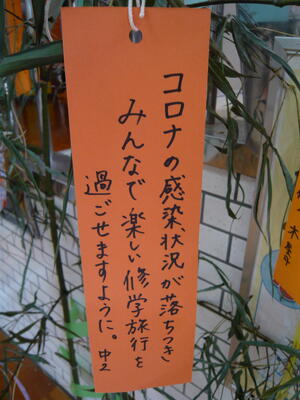 コロナの感染状況が落ちつき
みんなで楽しい修学旅行を
過ごせますように。
中2